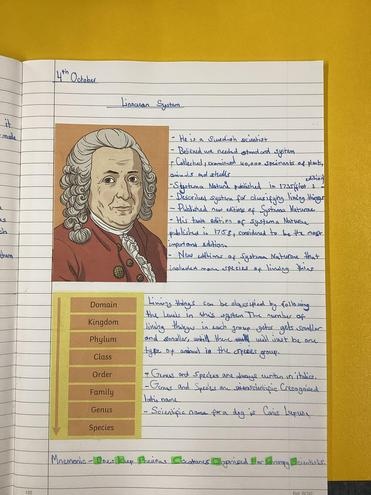 4th October
Linnaean System
it
- He is a Swedish scientist
- Believed we needed standard system
- Collected, examined 40,000 specimens of plants,
animals and shells
edition
- Systema Natura published in 1735 first
- Describes system for classifying living things
- Published new editions of Systema Naturae
- His tenth edition of systema Natura
published in 1758, considered to be the most
important edition
- New editions of Systema Naturae that
included more species of living things
Domain
Kingdom
Phylum
Class
Order
Family
Genus
Species
Living things can be classified by following
the levels in this system The number of
living things in each group gets smaller
and smaller, until there will just be one
type of animal in the species group.
- Genus and species are always written in italics.
- Genus and Species are scientific recognised
latin name
- Scientific name for a dog is Canis Lupus
Mnemonic - Does Keep Creatures Organised For Scientists